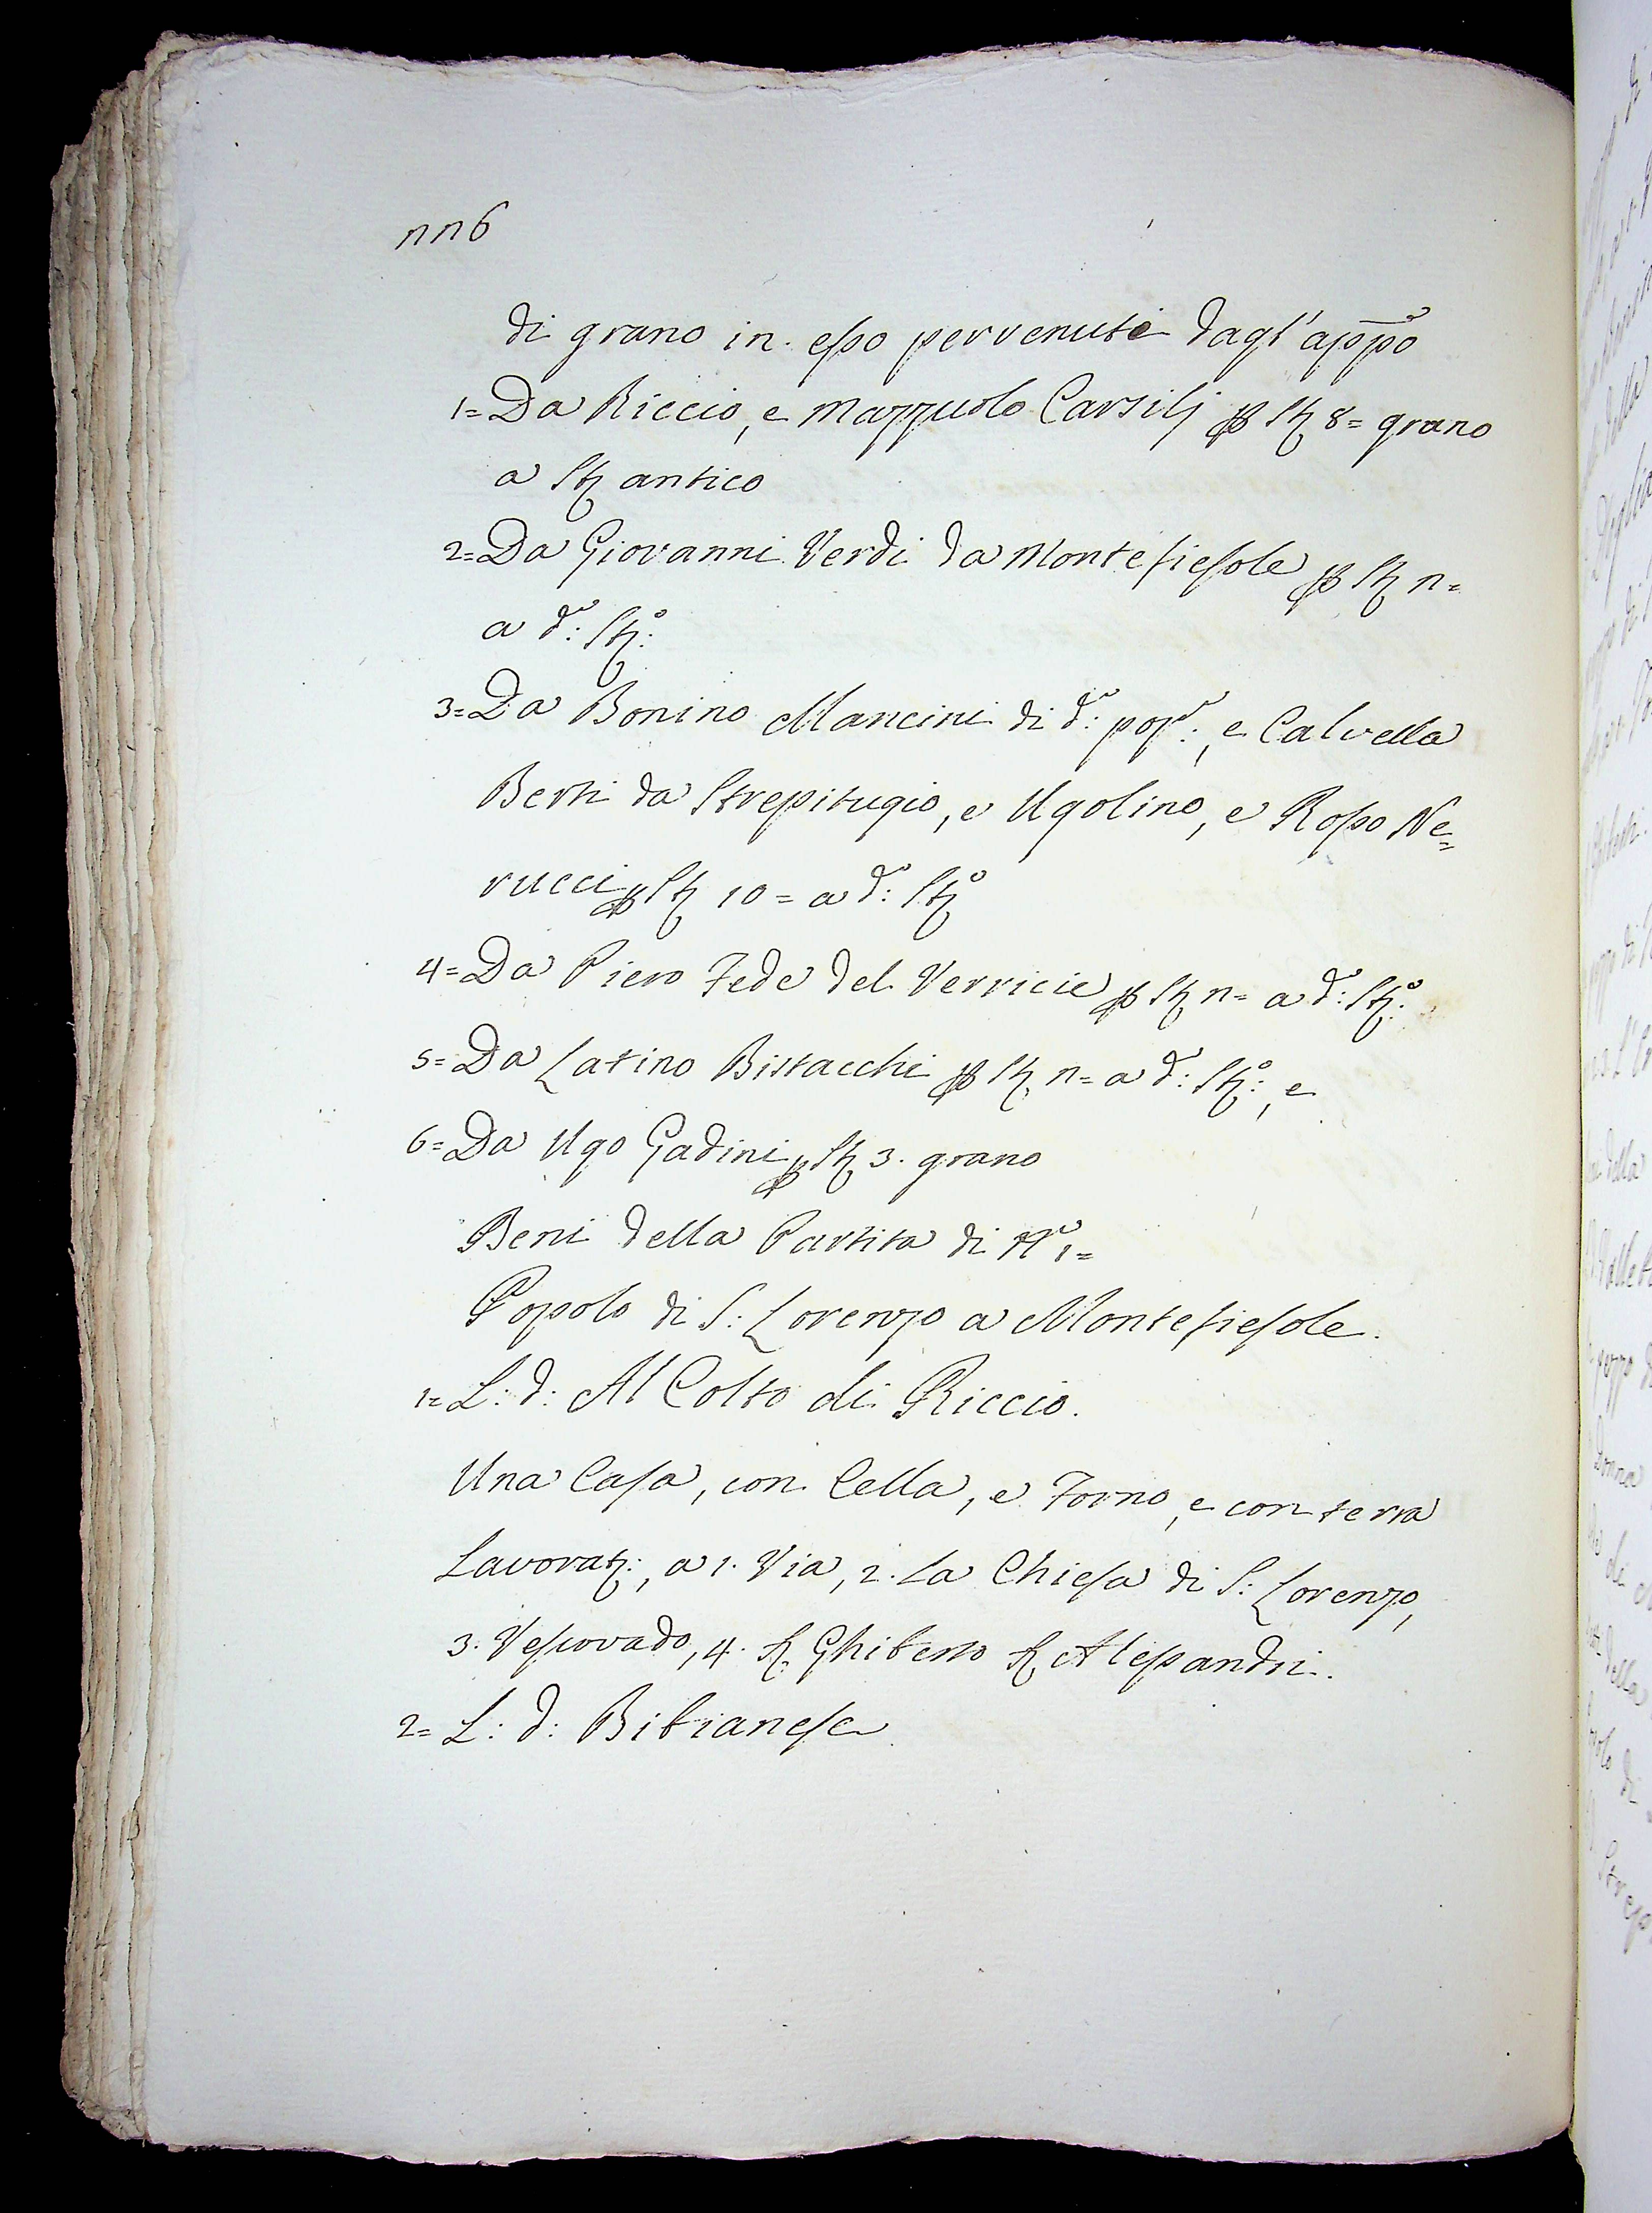 226
di grano in esso pervenuti dagl'appō
1= Da Riccio, e Mazzuolo Carsilj p Sta 8= grano
a Sta antico
2= Da Giovanni Verdi da Montefiesole p Sta 2=
a d.º: Stº:
3= Da Bonino Mancini di d.º: popº:, e Calvella
Berti da Strepitugio, e Ugolino, e Rosso Ne=
rucci p Sta 10= a d.º: Stº
4= Da Piero Fede del Verricie p Sta 2= a d.º: Stº:
5= Da Latino Bistacchi p Sta 2= a d.º: Stº:, e
6= Da Ugo Gadini p Sta 3. grano
Beni della Partita di Nº 1=
Popolo di S: Lorenzo a Montefiesole.
1= L: d: Al Colto di Riccio.
Una Casa, con Cella, e Forno, e con terra
Lavorat:, a 1. Via, 2. La Chiesa di S: Lorenzo,
3. Vescovado, 4. Ghiberto Alessandri.
2= L: d: Bibianese